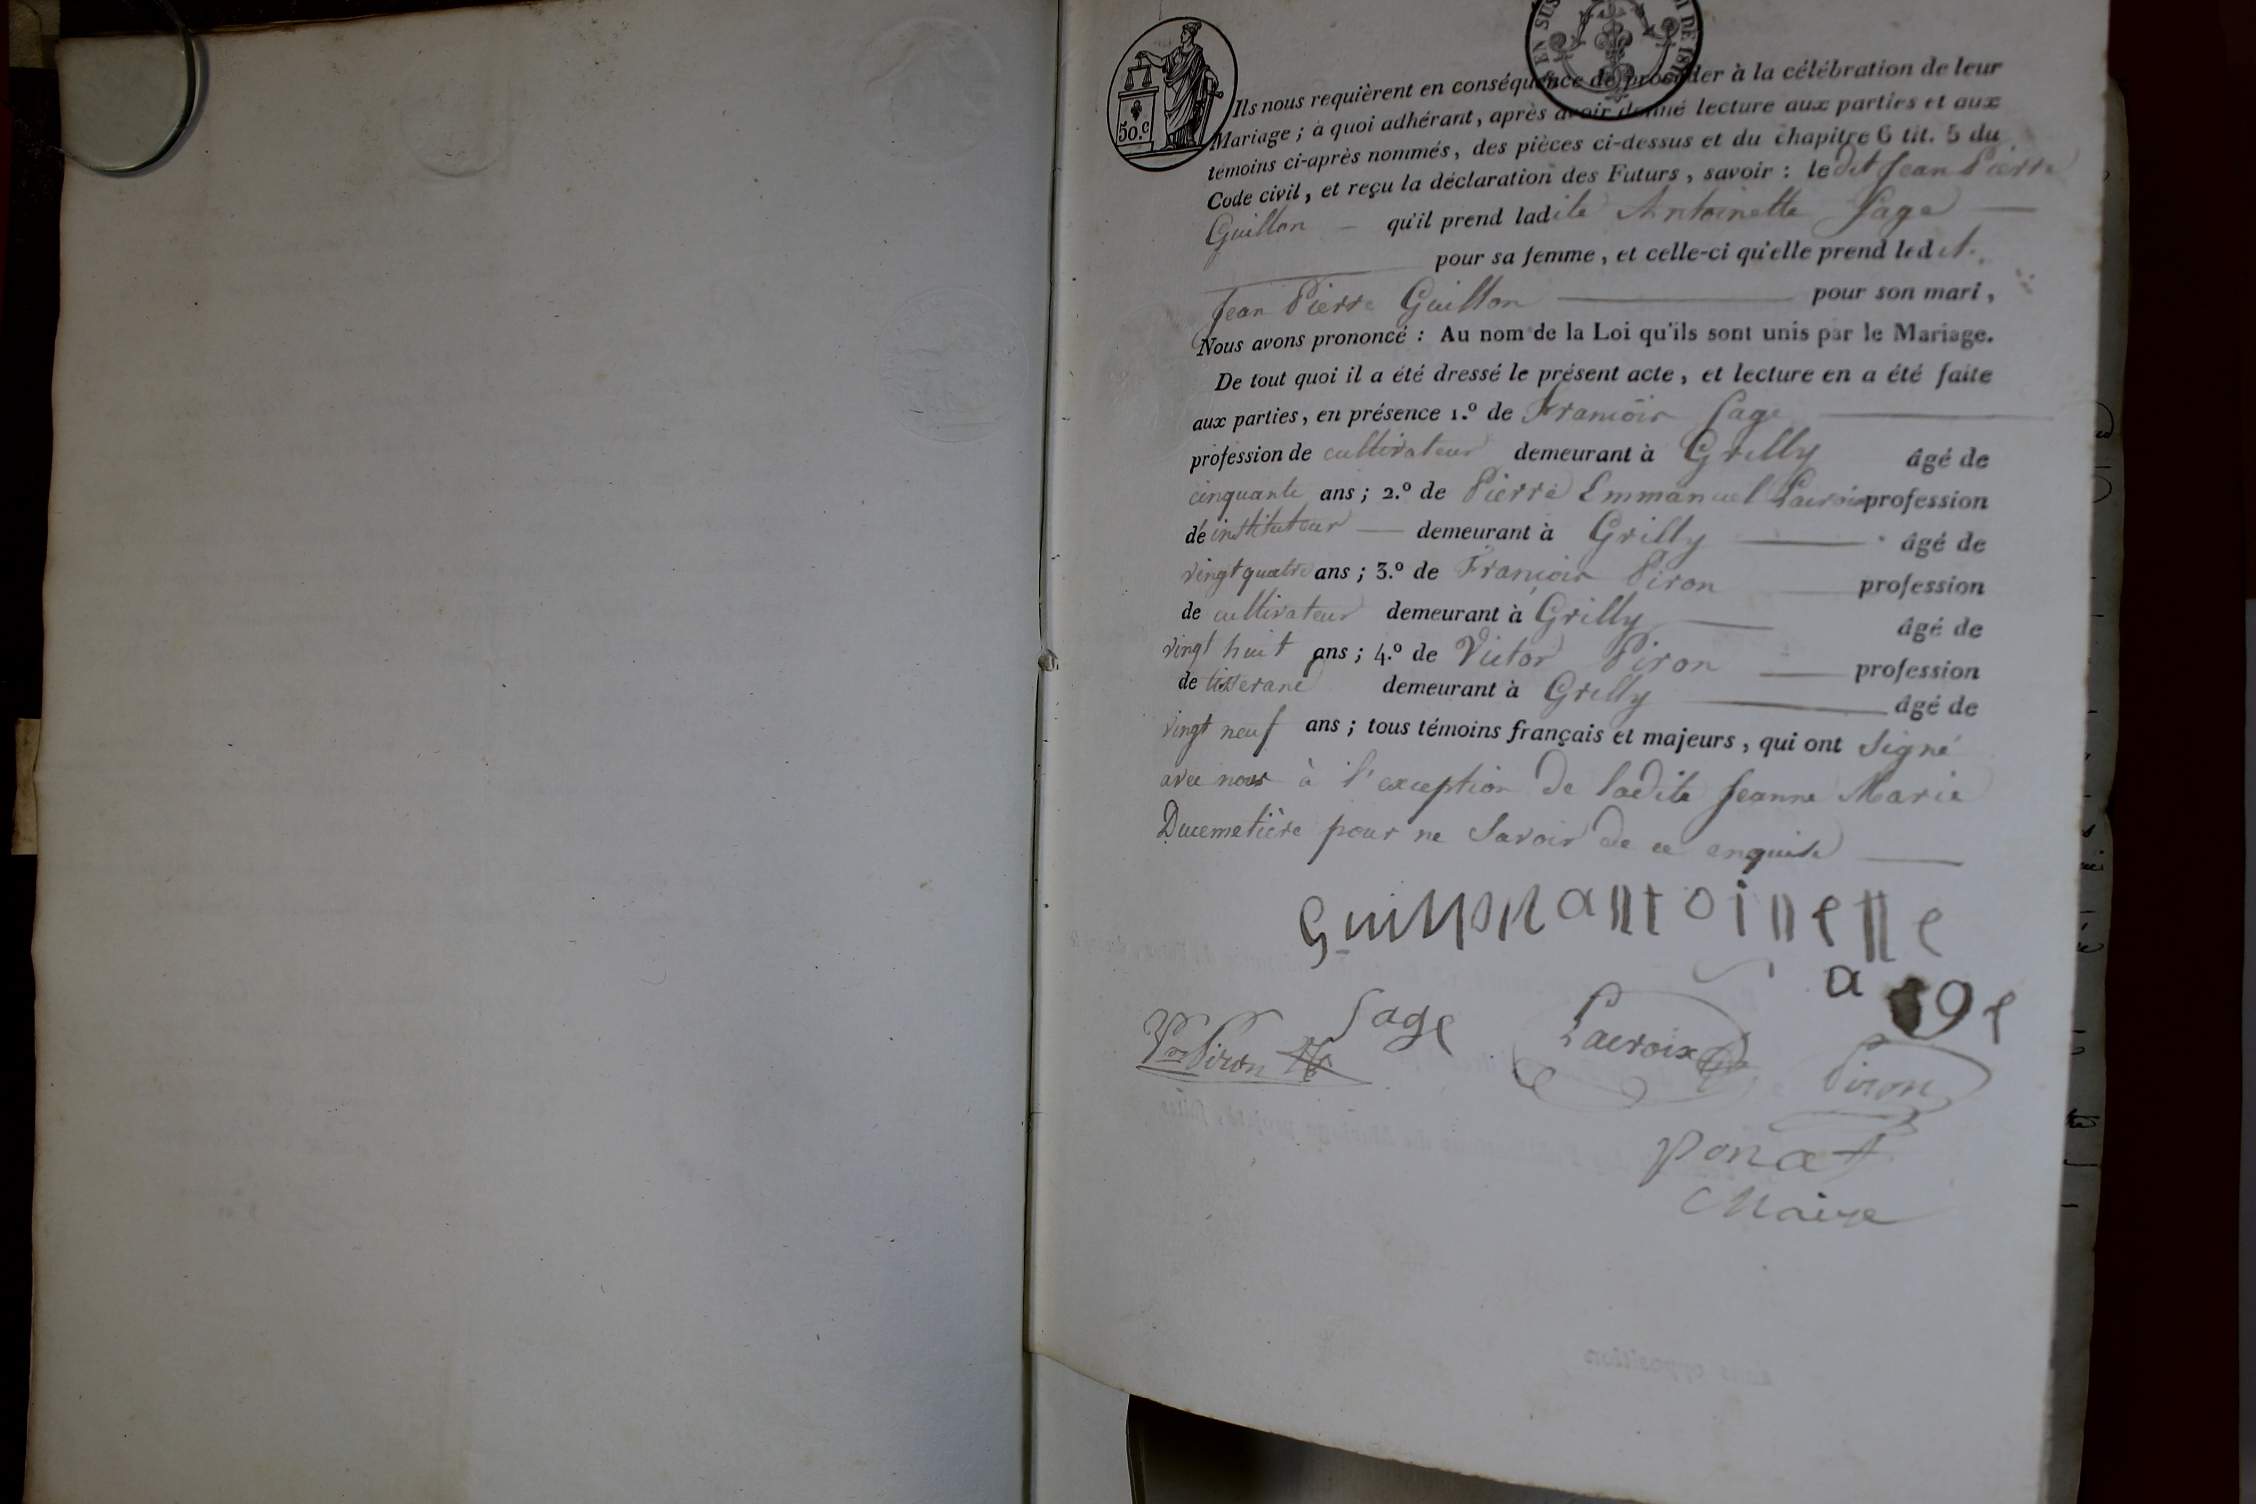 50.c
EN SUS
DE 181
Ils nous requièrent en conséquence de procéder à la célébration de leur
Mariage ; à quoi adhérant, après avoir donné lecture aux parties et aux
témoins ci-après nommés, des pièces ci-dessus et du chapitre 6 tit. 5 du
Code civil, et reçu la déclaration des Futurs, savoir : ledit Jean Pierre
Guillon — qu'il prend ladite Antoinette Sage —
pour sa femme, et celle-ci qu'elle prend ledit
Jean Pierre Guillon — pour son mari,
Nous avons prononcé : Au nom de la Loi qu'ils sont unis par le Mariage.
De tout quoi il a été dressé le présent acte, et lecture en a été faite
aux parties, en présence 1.º de François Sage —
profession de cultivateur demeurant à Grilly âgé de
cinquante ans ; 2.º de Pierre Emmanuel Lacroix profession
de instituteur — demeurant à Grilly — âgé de
vingt quatre ans ; 3.º de François Piron — profession
de cultivateur demeurant à Grilly — âgé de
vingt huit ans ; 4.º de Victor Piron — profession
de tisserand demeurant à Grilly — âgé de
vingt neuf ans ; tous témoins français et majeurs, qui ont signé
avec nous à l'exception de ladite Jeanne Marie
Ducemetière pour ne savoir de ce enquise —
Guillon antoinette
sage
Sage Lacroix
Vor Piron Piron
Ponat
Maire